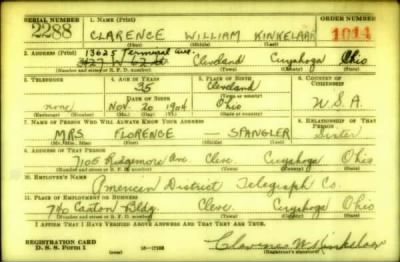 SERIAL NUMBER 1. NAME (Print) ORDER NUMBER
2288 CLARENCE WILLIAM KINKELAAR 1014
(First) (Middle) (Last)
2. ADDRESS (Print) 13625 Terminal Ave.
3427 W 62 Cleveland Cuyahoga Ohio
(Number and street or R. F. D. number) (Town) (County) (State)
3. TELEPHONE 4. AGE IN YEARS 5. PLACE OF BIRTH 6. COUNTRY OF CITIZENSHIP
35 Cleveland
DATE OF BIRTH
none Nov. 20 1904 Ohio U.S.A.
(Mo.) (Day) (Yr.)
7. NAME OF PERSON WHO WILL ALWAYS KNOW YOUR ADDRESS 8. RELATIONSHIP OF THAT PERSON
MRS FLORENCE — SPANGLER Sister
(Mr., Mrs., Miss) (First) (Middle) (Last)
9. ADDRESS OF THAT PERSON
7105 Ridgemore Ave Cleve. Cuyahoga Ohio
(Number and street or R. F. D. number) (Town) (County) (State)
10. EMPLOYER'S NAME
American District Telegraph Co.
11. PLACE OF EMPLOYMENT OR BUSINESS
740 Caxton Bldg. Cleve. Cuyahoga Ohio
(Number and street or R. F. D. number) (Town) (County) (State)
I AFFIRM THAT I HAVE VERIFIED ABOVE ANSWERS AND THAT THEY ARE TRUE.
REGISTRATION CARD
D. S. S. Form 1 Clarence W Kinkelaar
(Registrant's signature)